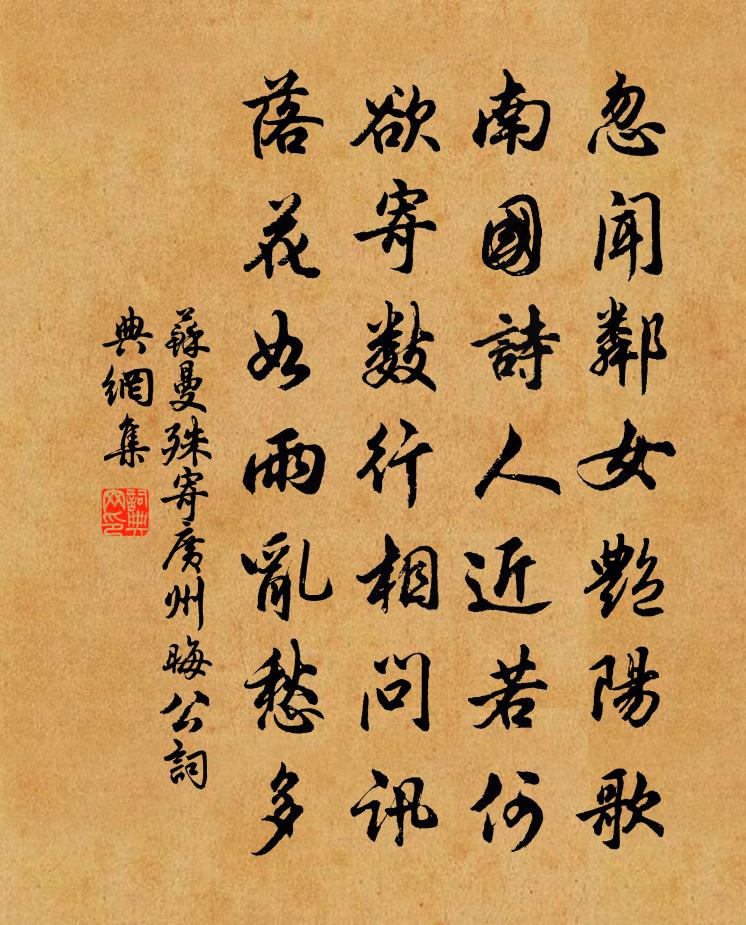 忽聞鄰女艷陽歌
南國詩人近若何
欲寄數行相問訊
落花如雨亂愁多
蘇曼殊寄廣州晦公詞
典網集
詞典
网印